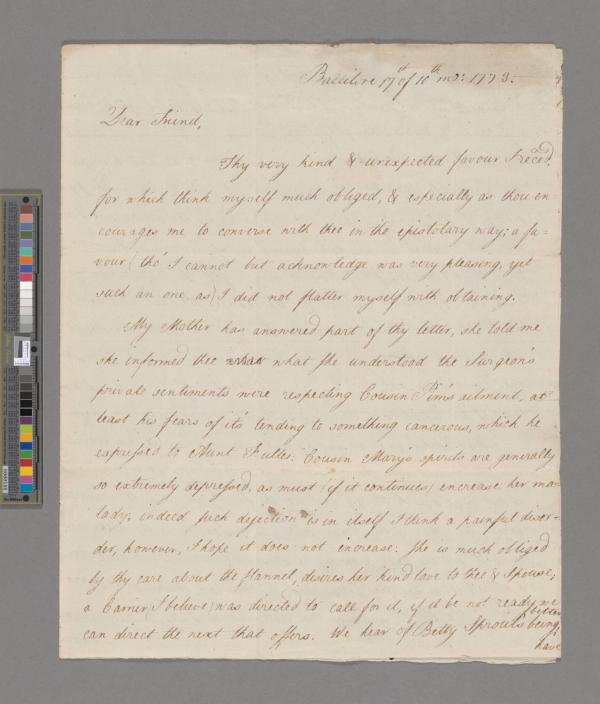 Ballitore 17th of 10th mo: 1773.
Dear Friend,
Thy very kind & unexpected favour I reced.
for which think myself much obliged, & especially as thou en-
courages me to converse with thee in the epistolary way; a fa-
vour (tho' I cannot but acknowledge was very pleasing, yet
such an one, as) I did not flatter myself with obtaining.
My Mother has answered part of thy letter, she told me
she informed thee what what she understood the Surgeon's
private sentiments were respecting Cousin Pim's ailment, at
least his fears of it's tending to something cancerous, which he
expressed to Aunt Fuller: Cousin Mary's spirits are generally
so extremely depressed, as must (if it continues) increase her ma-
lady; indeed such dejection is in itself I think a painful disor-
der, however, I hope it does not increase: she is much obliged
by thy care about the flannel, desires her kind love to thee & Spouse;
a Carrier (I believe) was directed to call for it, if it be not ready we
can direct the next that offers. We hear of Betty Sprouls being
better
have